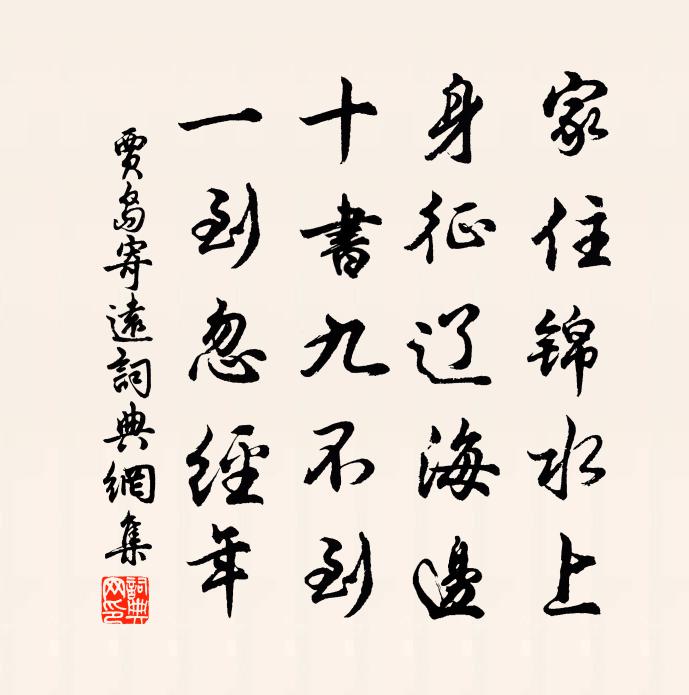 家住锦水上
身征辽海邊
十書九不到
一到忽經年
賈島寄遠詞典網集
詞典网印